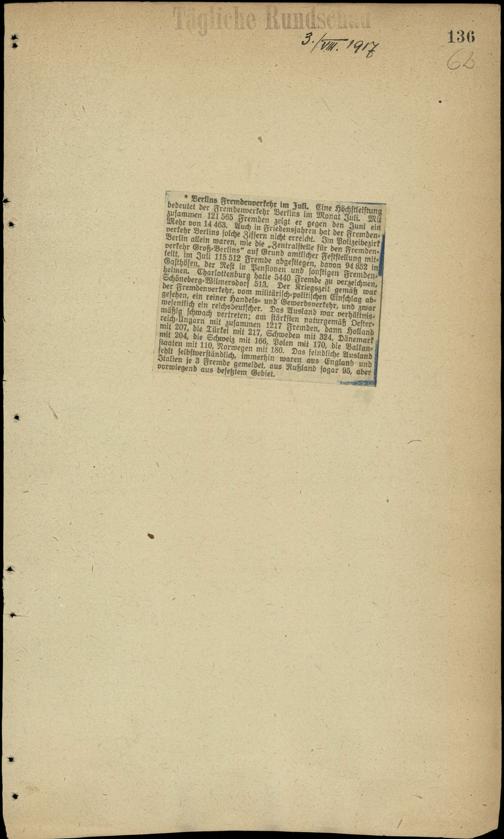 Tägliche Rundschau
3./VIII. 1917
136
62
* Berlins Fremdenverkehr im Juli. Eine Höchstleistung
bedeutet der Fremdenverkehr Berlins im Monat Juli. Mit
zusammen 121 565 Fremden zeigt er gegen den Juni ein
Mehr von 14 463. Auch in Friedensjahren hat der Fremden-
verkehr Berlins solche Ziffern nicht erreicht. Im Polizeibezirk
Berlin allein waren, wie die „Zentralstelle für den Fremden-
verkehr Groß-Berlins“ auf Grund amtlicher Feststellung mit-
teilt, im Juli 115 512 Fremde abgestiegen, davon 94 852 in
Gasthöfen, der Rest in Pensionen und sonstigen Fremden-
heimen. Charlottenburg hatte 5440 Fremde zu verzeichnen,
Schöneberg-Wilmersdorf 513. Der Kriegszeit gemäß war
der Fremdenverkehr, vom militärisch-politischen Einschlag ab-
gesehen, ein reiner Handels- und Gewerbsverkehr, und zwar
wesentlich ein reichsdeutscher. Das Ausland war verhältnis-
mäßig schwach vertreten; am stärksten naturgemäß Oester-
reich-Ungarn mit zusammen 1217 Fremden, dann Holland
mit 207, die Türkei mit 217, Schweden mit 324, Dänemark
mit 204, die Schweiz mit 166, Polen mit 170, die Balkan-
staaten mit 110, Norwegen mit 180. Das feindliche Ausland
fehlt selbstverständlich, immerhin waren aus England und
Italien je 3 Fremde gemeldet, aus Rußland sogar 95, aber
vorwiegend aus besetztem Gebiet.